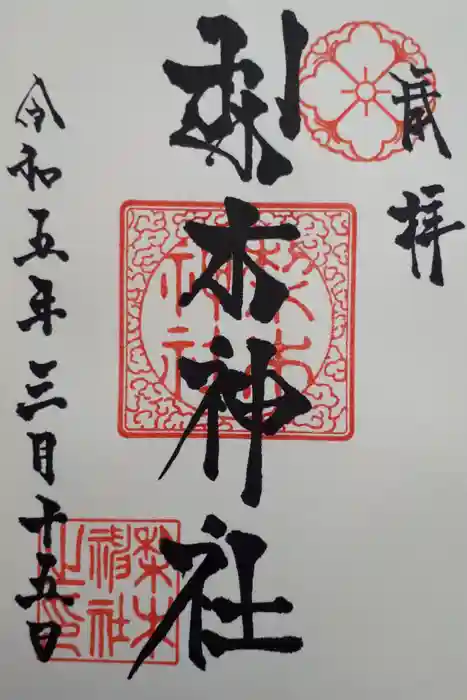 拝
梨木神社
梨木
神社
令和五年三月十五日
梨木
神社
之印